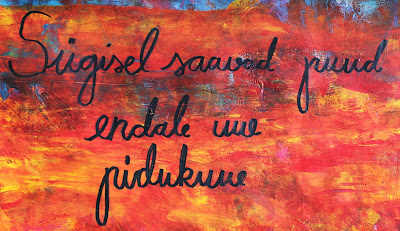 Sügisel saavad puud
endale uue
pidukuue